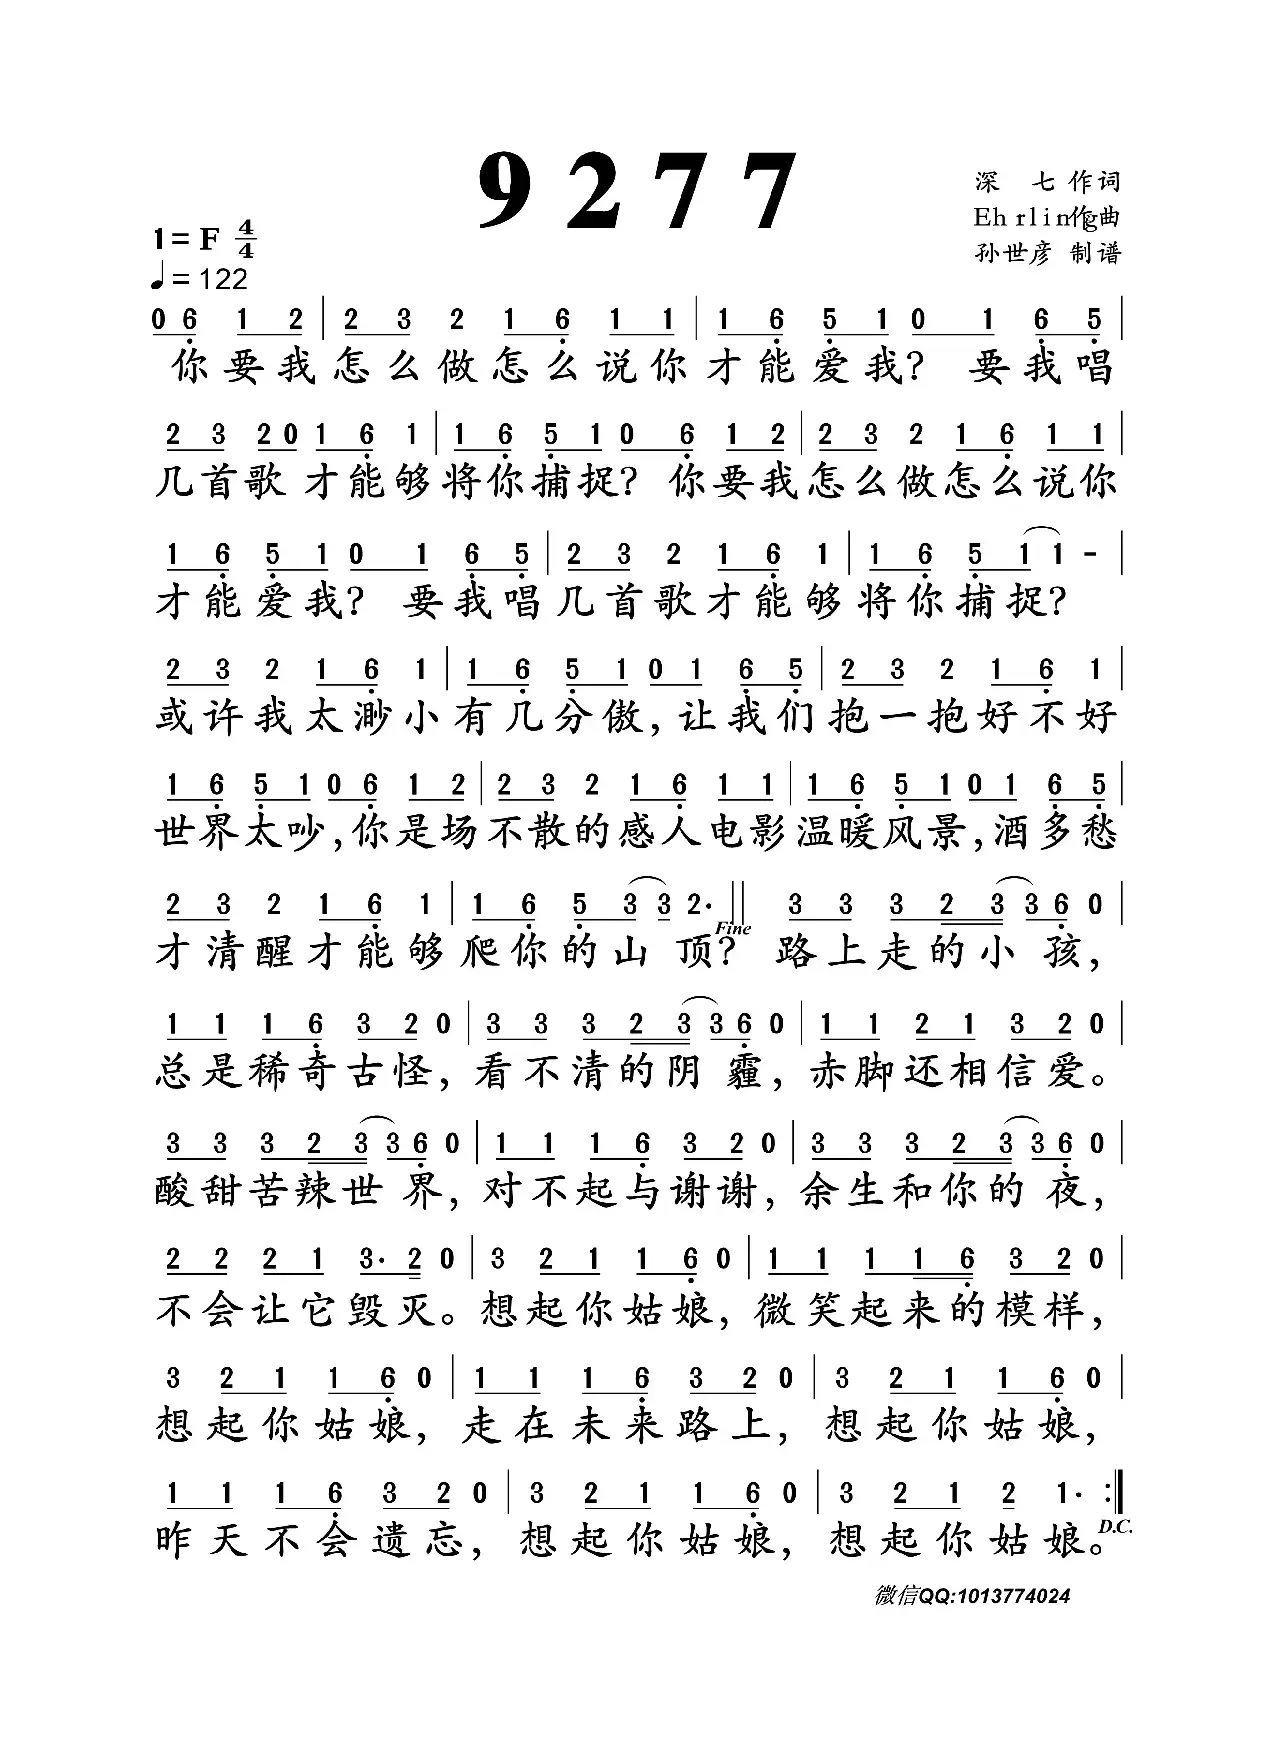 9 2 7 7
深 七 作词
Ehrling作曲
孙世彦 制谱
1=F 4/4
♩=122
0 6 1 2 | 2 3 2 1 6 1 1 | 1 6 5 1 0 1 6 5 |
你要我怎么做怎么说你才能爱我？ 要我唱
2 3 2 0 1 6 1 | 1 6 5 1 0 6 1 2 | 2 3 2 1 6 1 1 |
几首歌 才能够将你捕捉？ 你要我怎么做怎么说你
1 6 5 1 0 1 6 5 | 2 3 2 1 6 1 | 1 6 5 1 1 - |
才能爱我？ 要我唱几首歌才能够将你捕捉？
2 3 2 1 6 1 | 1 6 5 1 0 1 6 5 | 2 3 2 1 6 1 |
或许我太渺小有几分傲，让我们抱一抱好不好
1 6 5 1 0 6 1 2 | 2 3 2 1 6 1 1 | 1 6 5 1 0 1 6 5 |
世界太吵，你是场不散的感人电影温暖风景，酒多愁
2 3 2 1 6 1 | 1 6 5 3 3 2· || 3 3 3 2 3 3 6 0 |
Fine
才清醒才能够爬你的山 顶？ 路上走的小 孩，
1 1 1 6 3 2 0 | 3 3 3 2 3 3 6 0 | 1 1 2 1 3 2 0 |
总是稀奇古怪，看不清的阴 霾，赤脚还相信爱。
3 3 3 2 3 3 6 0 | 1 1 1 6 3 2 0 | 3 3 3 2 3 3 6 0 |
酸甜苦辣世 界，对不起与谢谢，余生和你的 夜，
2 2 2 1 3· 2 0 | 3 2 1 1 6 0 | 1 1 1 1 6 3 2 0 |
不会让它毁灭。想起你姑娘，微笑起来的模样，
3 2 1 1 6 0 | 1 1 1 6 3 2 0 | 3 2 1 1 6 0 |
想起你姑娘，走在未来路上，想起你姑娘，
1 1 1 6 3 2 0 | 3 2 1 1 6 0 | 3 2 1 2 1· :|
D.C.
昨天不会遗忘，想起你姑娘，想起你姑娘。
微信QQ:1013774024